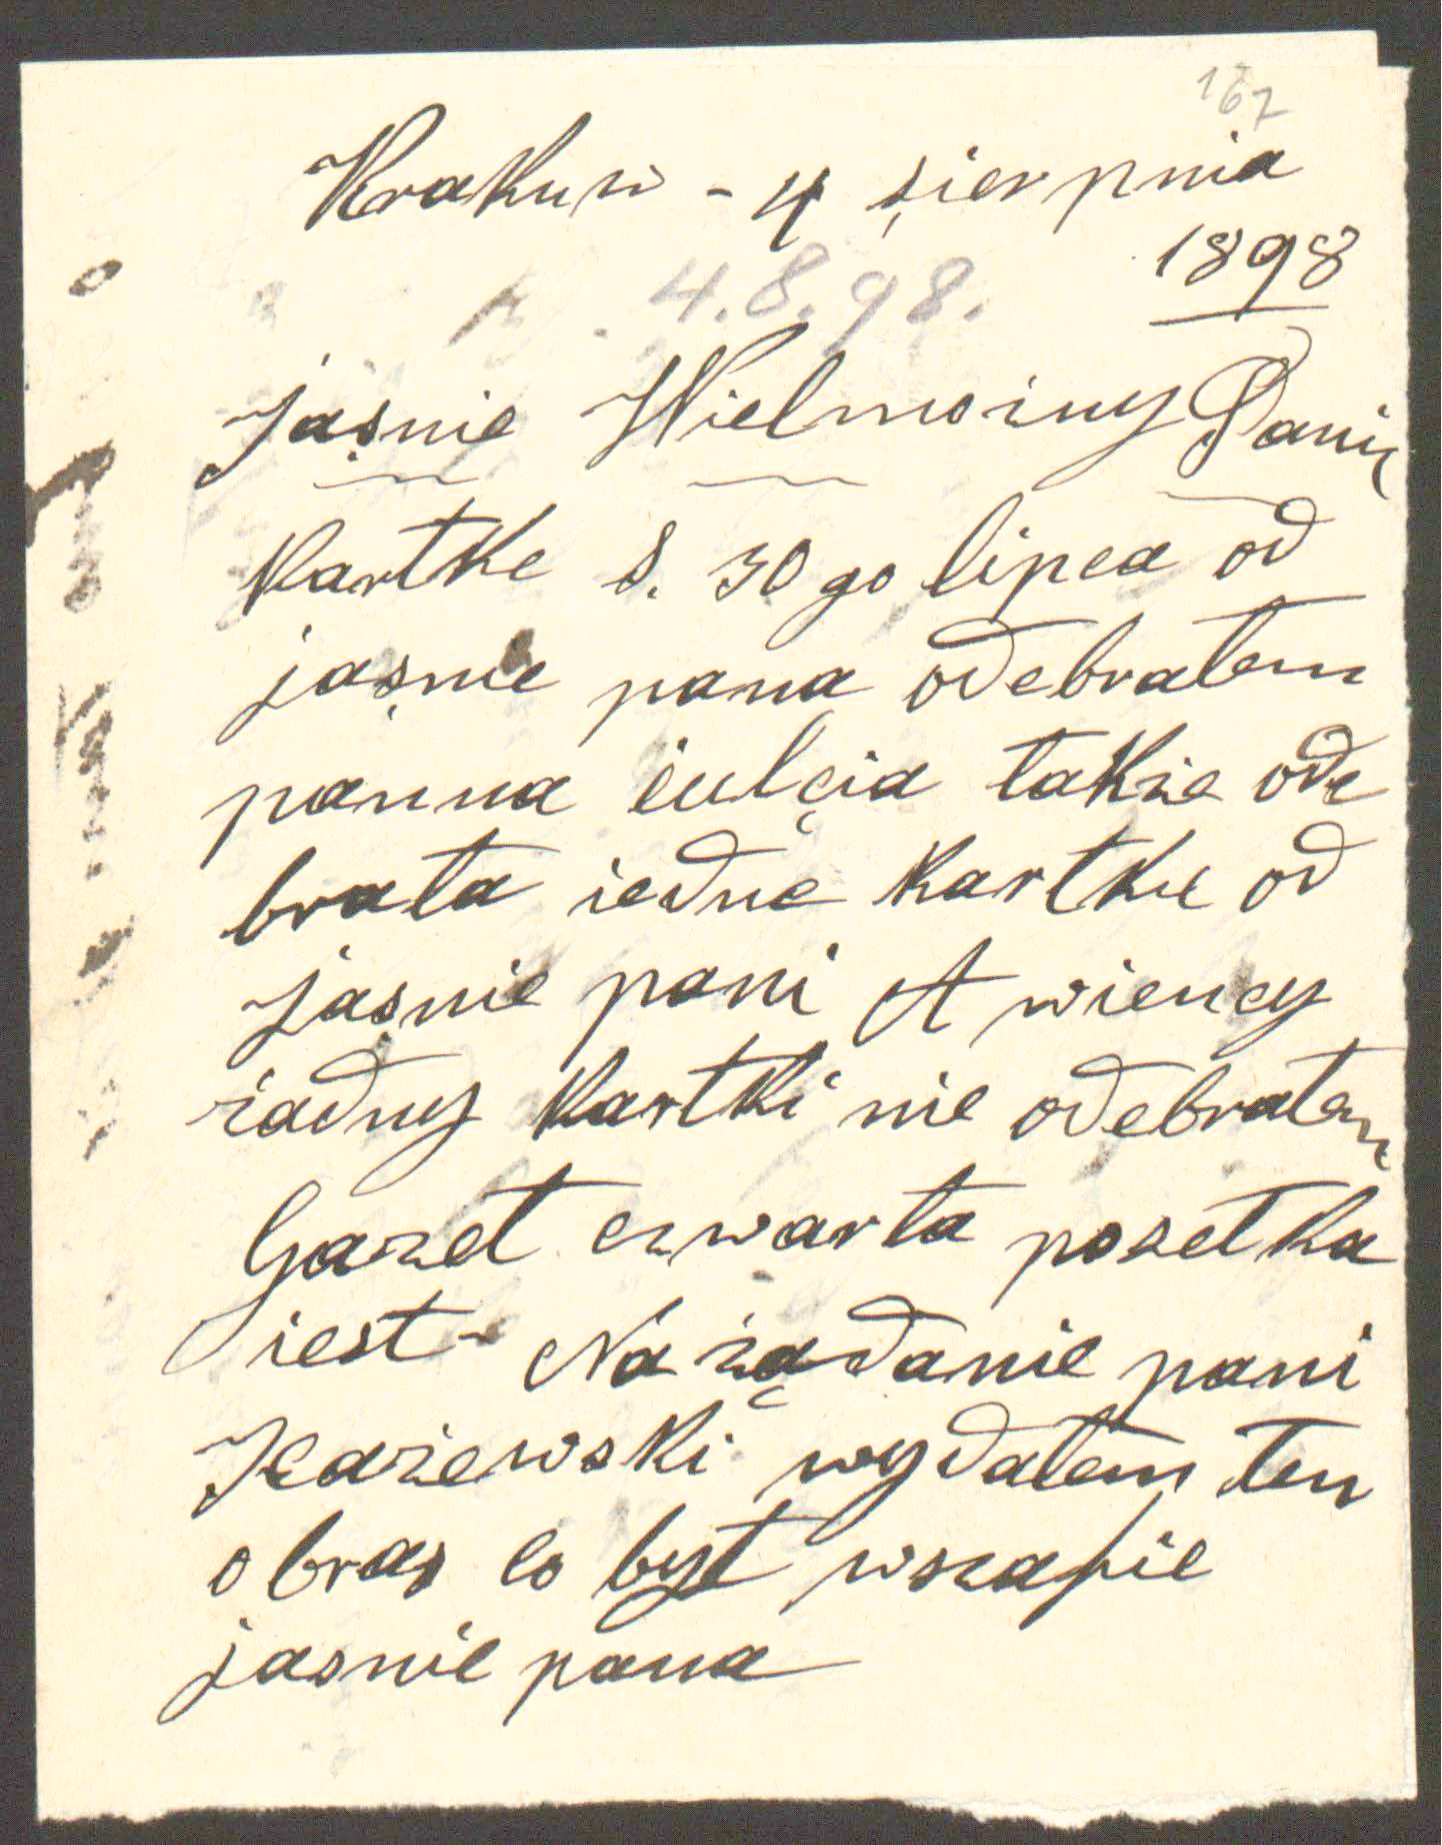 167
Krakuw - 4 sierpnia
1898
4.8.98.
Jaśnie Wielmożny Panie
Kartke d. 30 go lipca od
jaśnie pana odebrałem
panna iulcia także ode
brała iedne kartke od
Jaśnie pani A wiency
żadny kartki nie odebrałem
Gazet czwarta posełka
iest - Na żądanie pani
Jeażewski wydałem ten
obras co był wszafie
jasnie pana